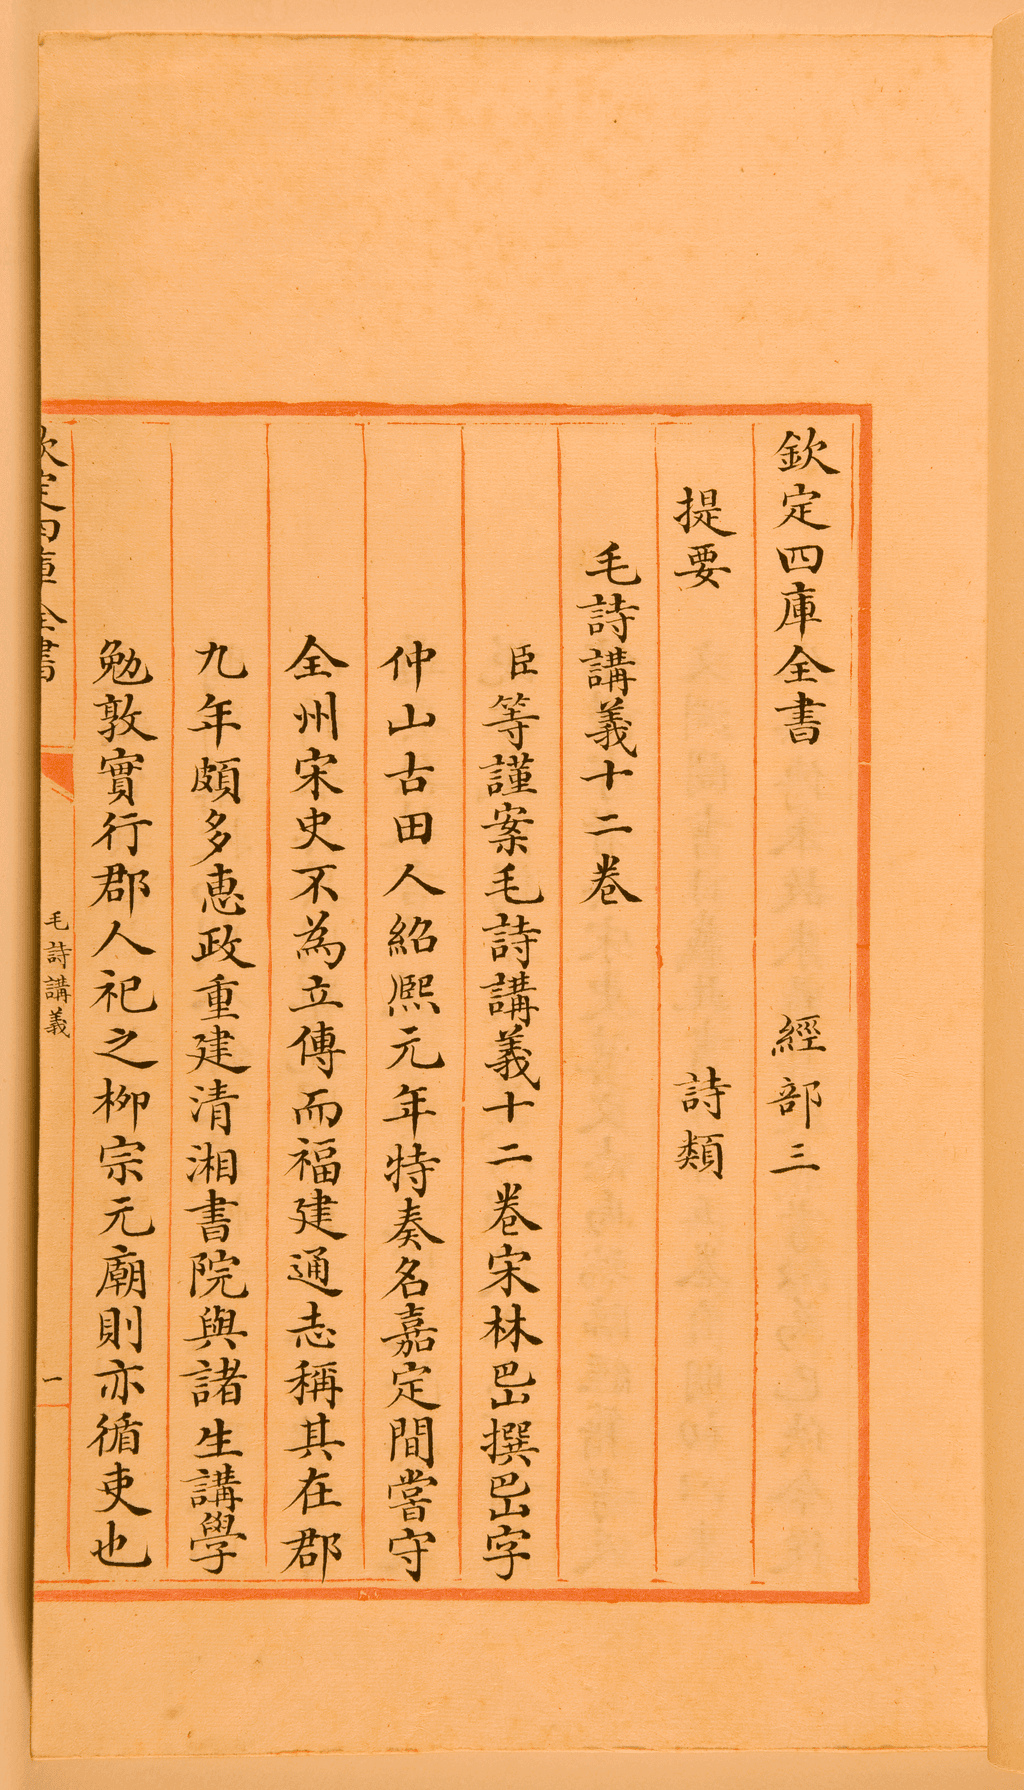 欽定四庫全書 經部三
提要 詩類
毛詩講義十二卷
臣等謹案毛詩講義十二卷宋林嵒撰嵒字
仲山古田人紹熈元年特奏名嘉定間嘗守
全州宋史不為立傳而福建通志稱其在郡
九年頗多惠政重建清湘書院與諸生講學
勉敦實行郡人祀之柳宗元廟則亦循吏也
欽定四庫全書 毛詩講義 一